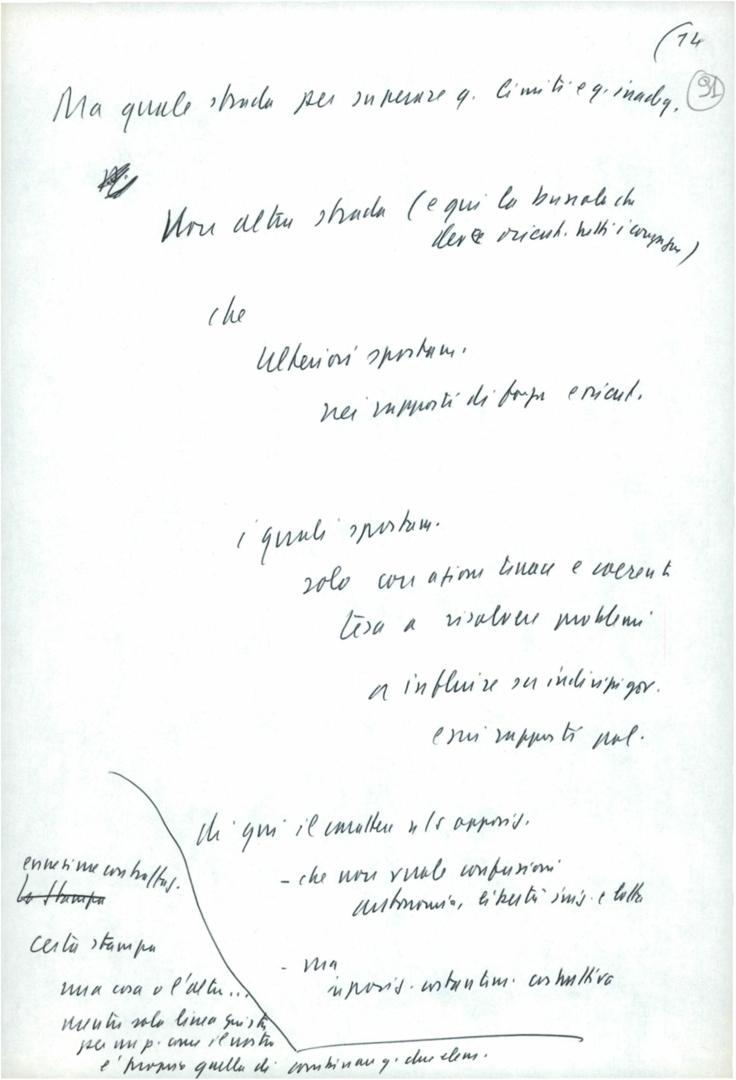 (14
91
Ma quale strada per superare q. limiti e q. inadeg.
Non altra strada (e qui la bussola che
deve orient. tutti i compagni)
che
ulteriori spostam.
nei rapporti di forza e orient.
i quali spostam.
solo con azione tenace e coerente
tesa a risolvere problemi
a influire su indirizzi gov.
e sui rapporti pol.
di qui il carattere opposiz.
- che non vuole confusioni
autonomia, libertà giudiz. e lotta
- ma
opposiz. costantem. costruttiva
contrattaz.
La Stampa
certa stampa
una cosa o l'altra...
mentre sola linea giusta
per un p. come il nostro
è proprio quella di combinare q. due elem.